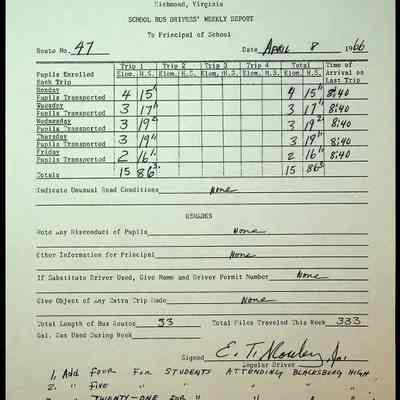 Richmond, Virginia
SCHOOL BUS DRIVERS' WEEKLY REPORT
To Principal of School
Route No. 47 Date April 8 1966
Trip 1 Trip 2 Trip 3 Trip 4 Total Time of
Pupils Enrolled Elem. H.S. Elem. H.S. Elem. H.S. Elem. H.S. Elem. H.S. Arrival on
Each Trip Last Trip
Monday
Pupils Transported 4 15 4 15 8:40
Tuesday
Pupils Transported 3 17 3 17 8:40
Wednesday
Pupils Transported 3 19 3 19 8:40
Thursday
Pupils Transported 3 19 3 19 8:40
Friday
Pupils Transported 2 16 2 16 8:40
Totals 15 86 15 86
Indicate Unusual Road Conditions None
REMARKS
Note any Misconduct of Pupils None
Other Information for Principal None
If Substitute Driver Used, Give Name and Driver Permit Number None
Give Object of any Extra Trip Made None
Total Length of Bus Routes 33 Total Miles Traveled This Week 333
Gal. Gas Used During Week
Signed E. T. Jr.
Regular Driver
1. Add four for students attending Blacksburg High
2. " five " " "
" twenty-one for "